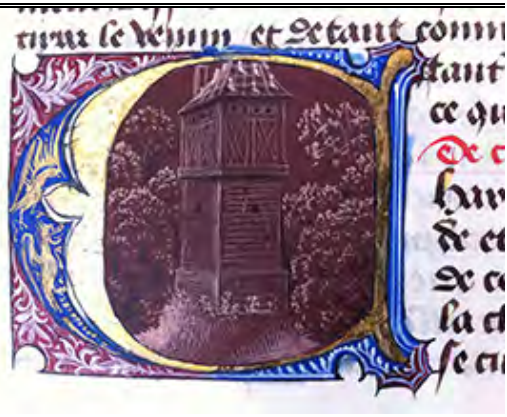 le venim et detant comm
tant
ce qu
De c
har
de et
De ce
la ch
se cu